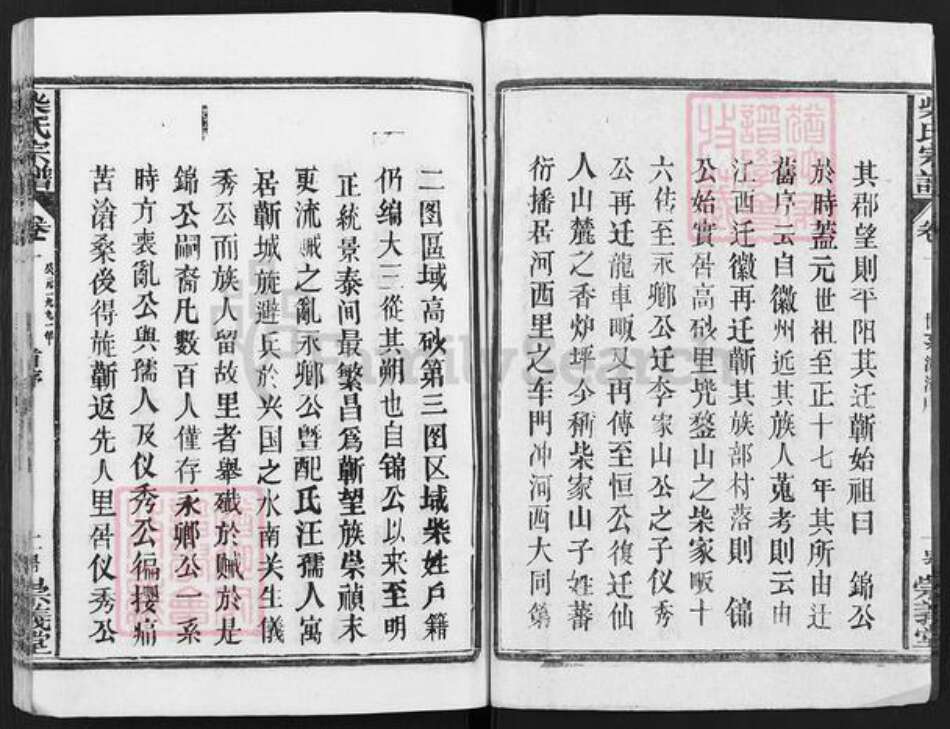 其郡望則平阳其迁蘄始祖曰 錦公
於時蓋元世祖至正十七年其所由迁
舊序云自徽州近其族人蒐考則云由
江西迁徽再迁蘄其族部村落則 錦
公始實居高砂里凳鍪山之柴家畈十
六传至永鄉公迁李家山公之子仪秀
公再迁龍車畈又再傳至恒公復迁仙
人山麓之香炉坪今稱柴家山子姓蕃
衍播居河西里之车門冲河西大同第
二图區域高砂第三图区域柴姓戶籍
仍编大三從其朔也自锦公以来至明
正統景泰间最繁昌爲蘄望族崇禎末
更流贼之亂永鄉公曁配氏汪孺人寓
居蘄城旋避兵於兴国之水南关生儀
秀公而族人留故里者舉殲於贼於是
錦公嗣裔凡數百人僅存永鄉公一系
時方衰亂公與孺人及仪秀公徧攖痛
苦滄桑後得旋蘄返先人里居仪秀公
柴氏宗譜
卷一
公元一九九一年
崇義堂
柴氏宗譜
崇義堂
FamilySearch